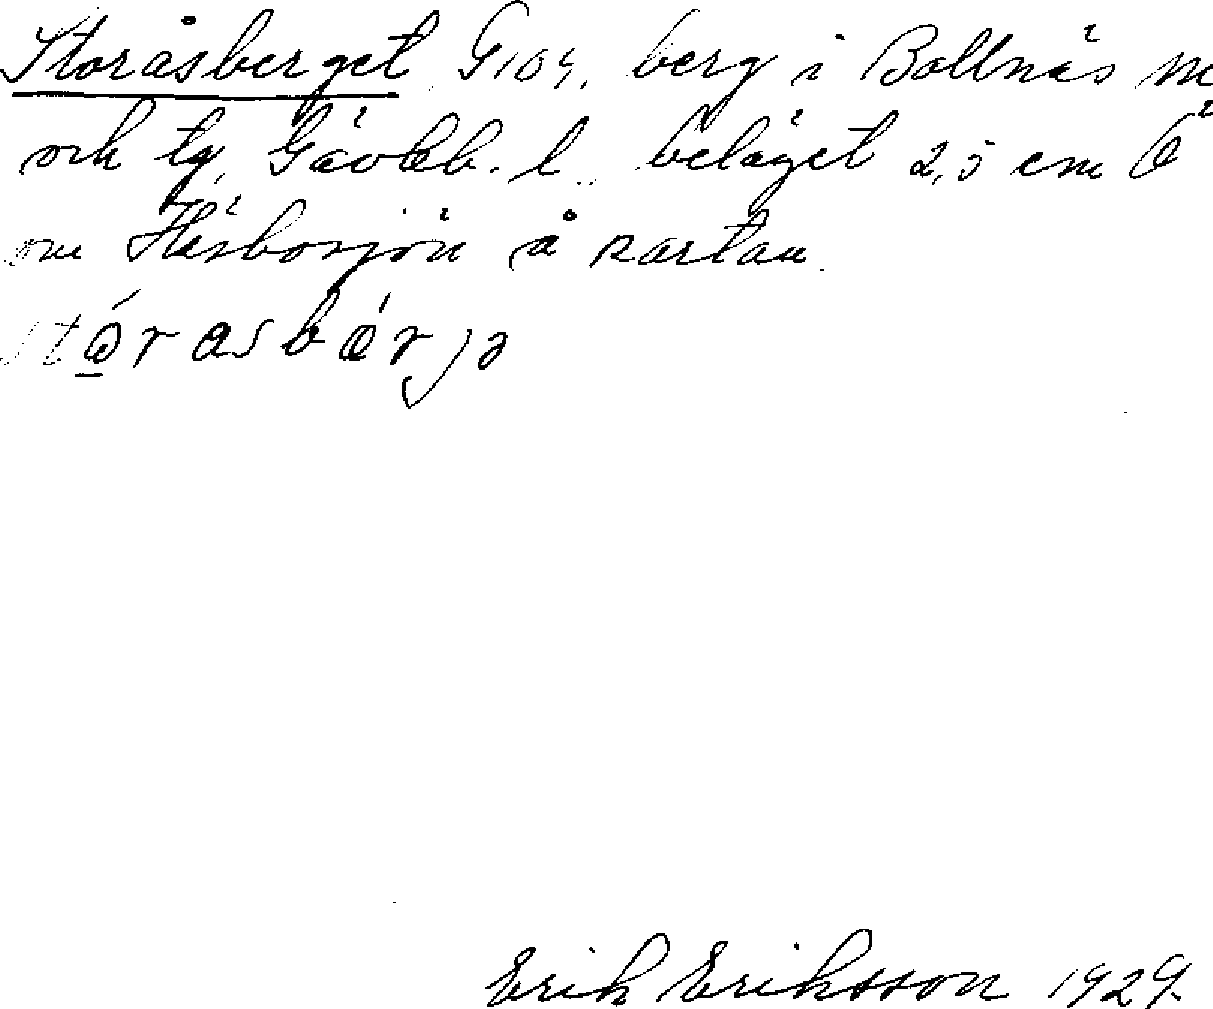 Storåsberget G109, berg i Bollnäs sn
och tg, Gävleb. l. beläget 2,5 cm Ö
om Häsbosjön å kartan.
stǫ́rasbǽrjə
Erik Eriksson 1929.